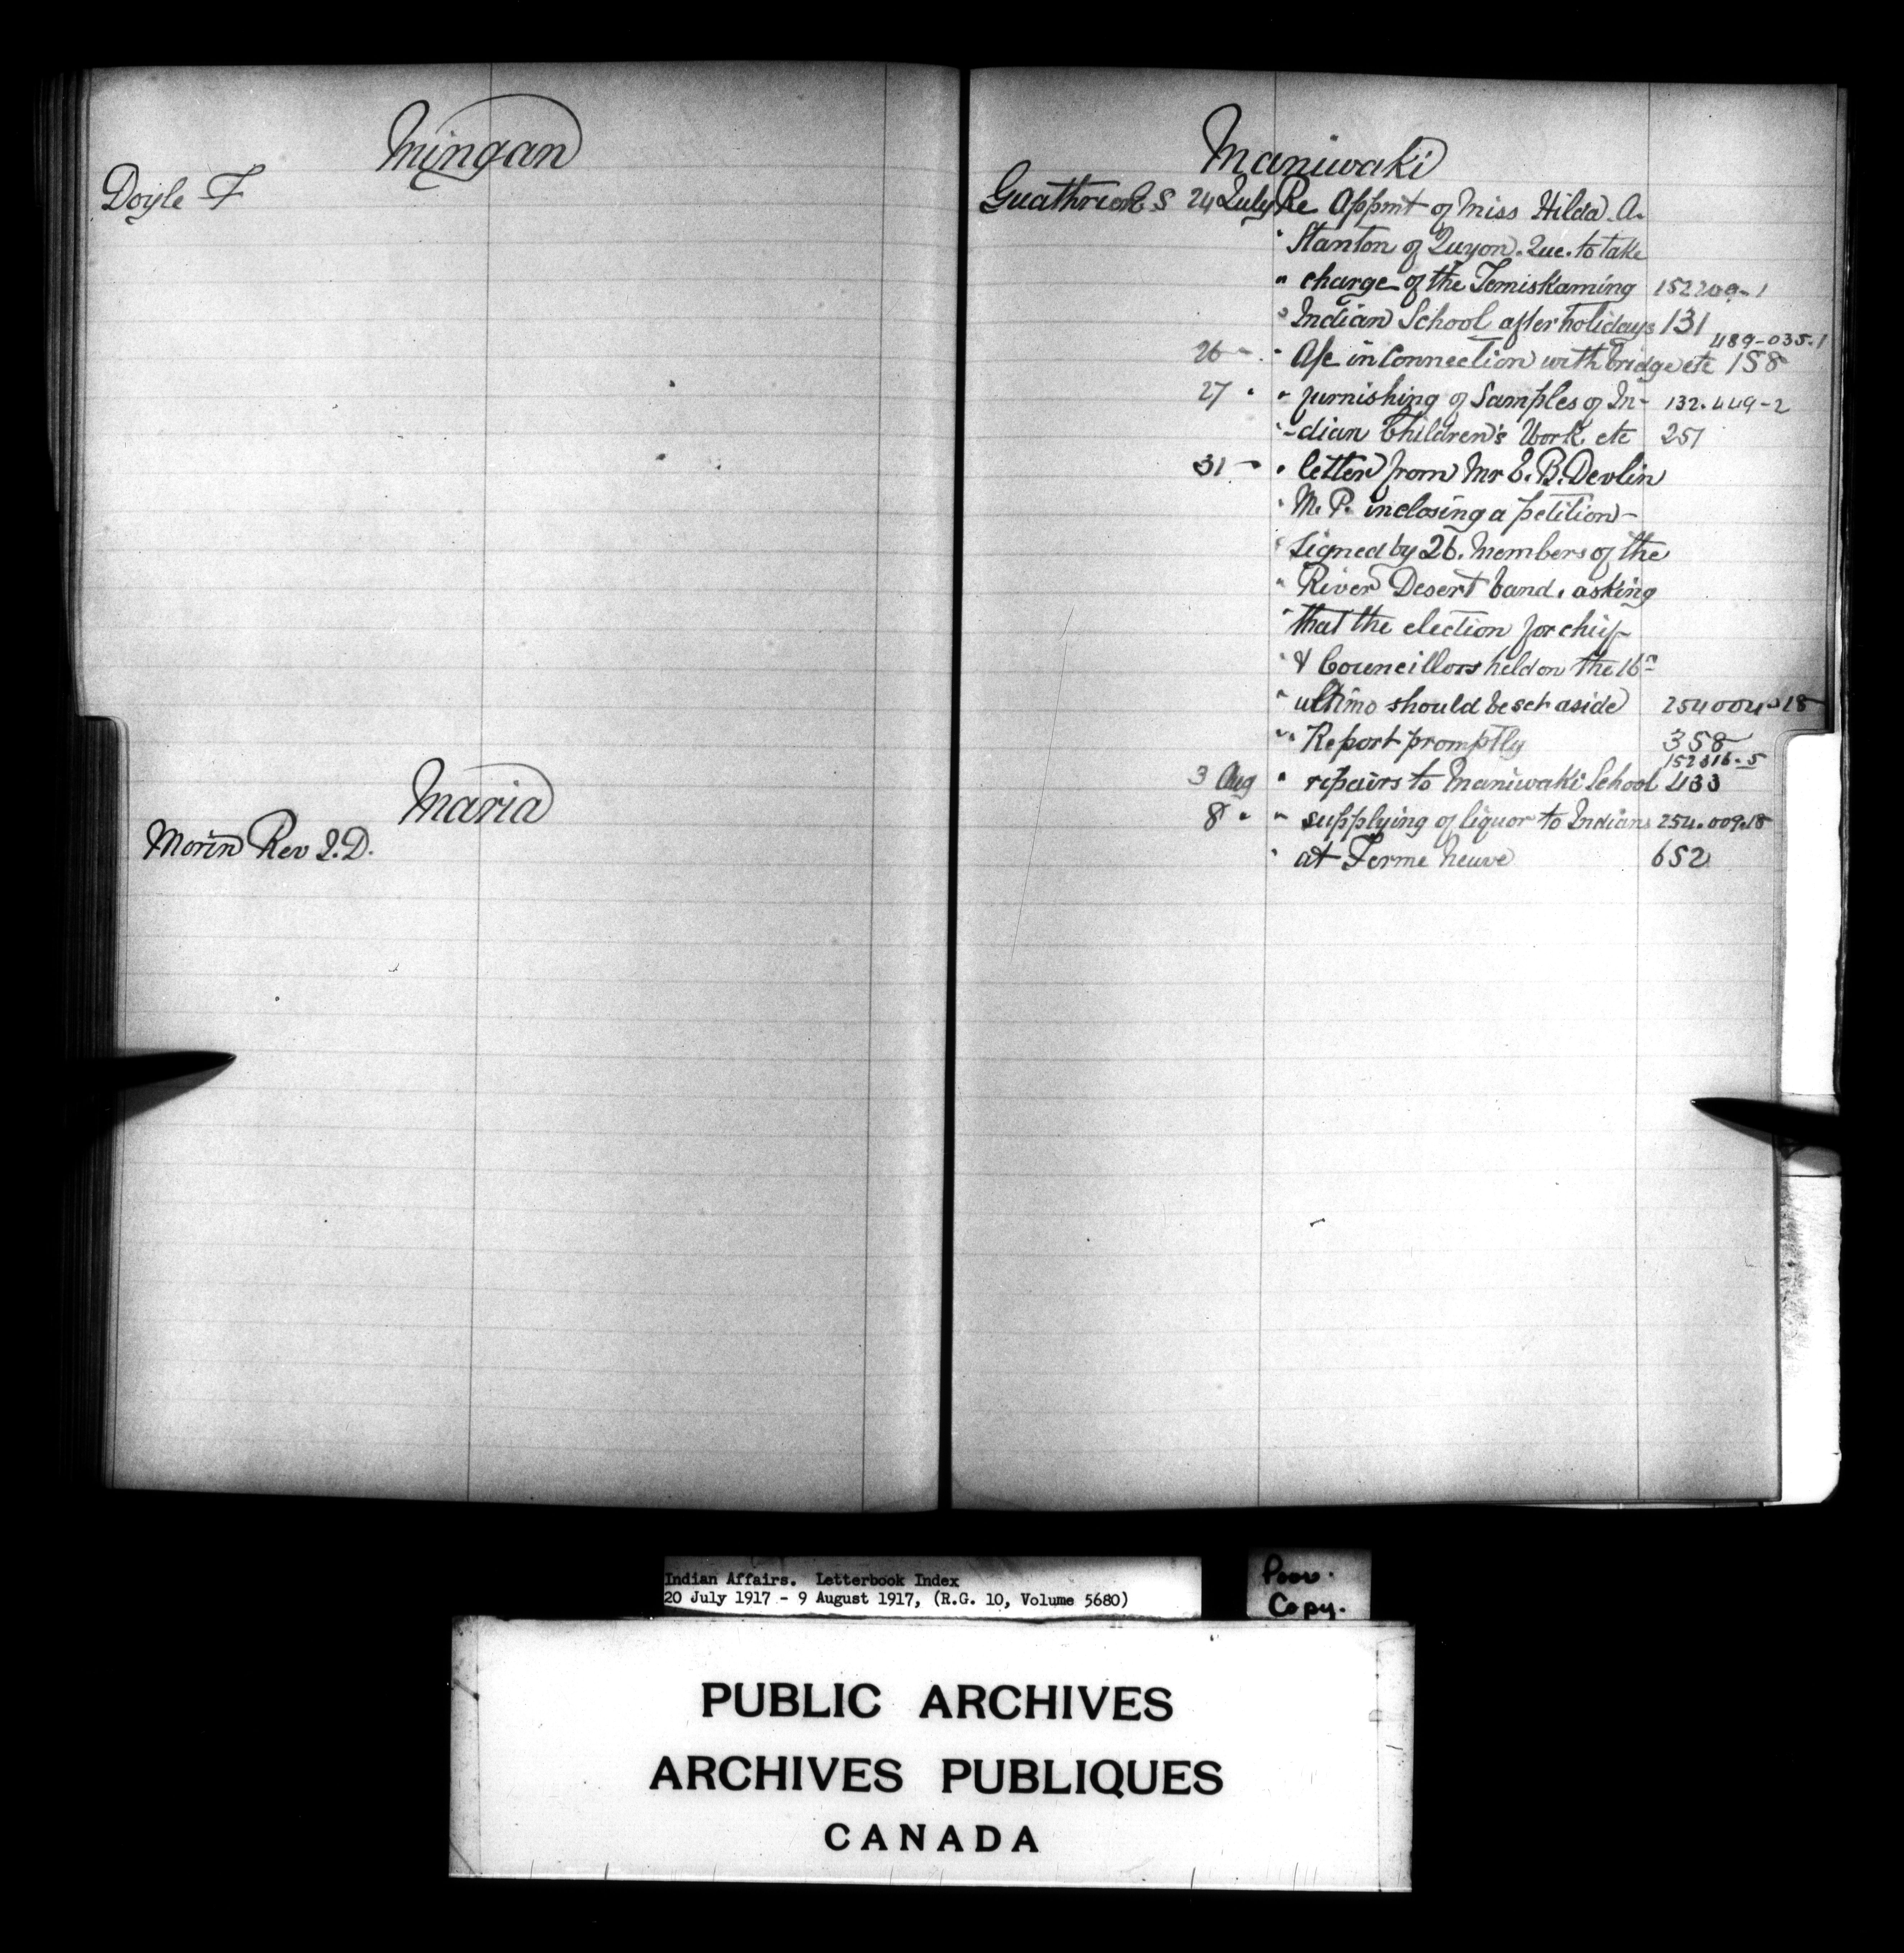 Mingan
Doyle F
Maria
Morin Rev J.D.
Maniwaki
E S 24 July Re Appmt of Miss Hilda A.
" Stanton of Quyon. Que. to take
" charge of the Temiskaming 152209-1
" Indian School after holidays 131
489-035.1
26 " " A/c in connection with bridge etc 158
27 " " furnishing of Samples of In- 132.449-2
" -dian Children's Work etc 251
31 " " letter from Mr E. B. Devlin
" M. P. inclosing a petition-
" signed by 26. Members of the
" River Desert band. asking
" that the election for chief-
" & Councillors held on the 16th
" ultimo should be set aside 254004-18
" " Report promptly 358
152316-5
3 Aug " repairs to Maniwaki School 433
8 " " supplying of liquor to Indians 254.009.18
" at Ferme Neuve 652
Indian Affairs. Letterbook Index
20 July 1917 - 9 August 1917, (R.G. 10, Volume 5680)
Poor.
Copy.
PUBLIC ARCHIVES
ARCHIVES PUBLIQUES
CANADA